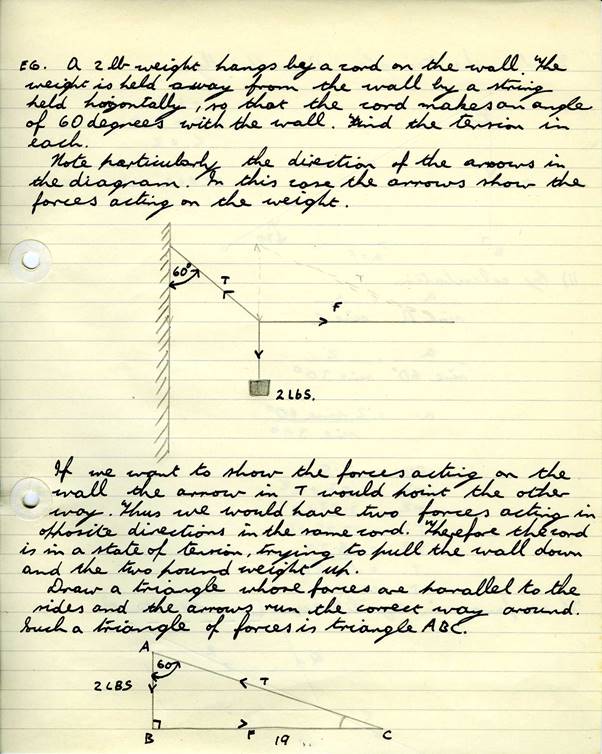 EG. A 2 lb weight hangs by a cord on the wall. The
weight is held away from the wall by a string
held horizontally, so that the cord makes an angle
of 60 degrees with the wall. Find the tension in
each.
Note particularly the direction of the arrows in
the diagram. In this case the arrows show the
forces acting on the weight.
60°
T
F
2 lbs.
If we want to show the forces acting on the
wall the arrow in T would point the other
way. Thus we would have two forces acting in
opposite directions in the same cord. Therefore the cord
is in a state of tension, trying to pull the wall down
and the two pound weight up.
Draw a triangle whose forces are parallel to the
sides and the arrows run the correct way around.
Such a triangle of forces is triangle ABC.
A
60°
2 LBS
T
B
F
19
C